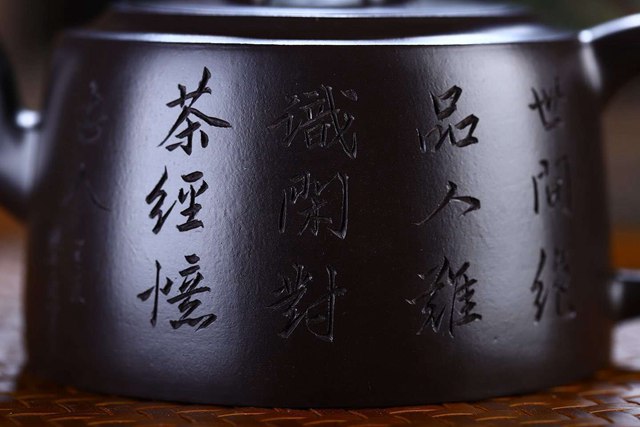 世間絕
品人難
識閑對
茶經憶
古人